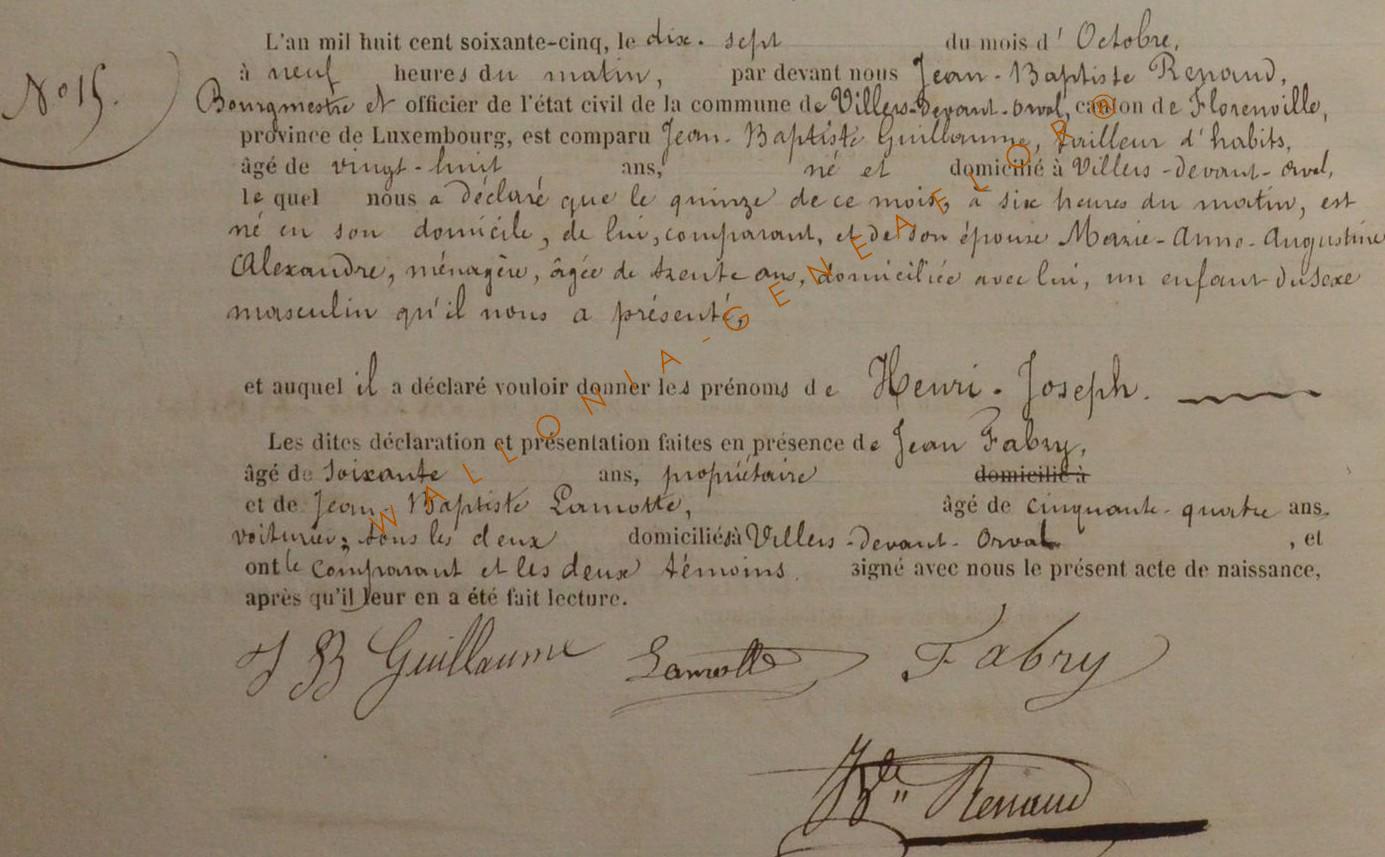 L'an mil huit cent soixante-cinq, le dix-sept du mois d'Octobre,
N° 15.
à neuf heures du matin, par devant nous Jean-Baptiste Renaud,
Bourgmestre et officier de l'état civil de la commune de Villers-devant-orval, canton de Florenville,
province de Luxembourg, est comparu Jean-Baptiste Guillaume, tailleur d'habits,
âgé de vingt-huit ans, né et domicilié à Villers-devant-orval,
lequel nous a déclaré que le quinze de ce mois, à six heures du matin, est
né en son domicile, de lui, comparant, et de son épouse Marie-Anne-Augustine
Alexandre, ménagère, âgée de trente ans, domiciliée avec lui, un enfant du sexe
masculin qu'il nous a présenté,
et auquel il a déclaré vouloir donner les prénoms de Henri-Joseph.
Les dites déclaration et présentation faites en présence de Jean Fabry,
âgé de soixante ans, propriétaire domicilié à
et de Jean-Baptiste Lamotte, âgé de cinquante-quatre ans,
voiturier; tous les deux domiciliés à Villers-devant-Orval, et
ont le comparant et les deux témoins signé avec nous le présent acte de naissance,
après qu'il leur en a été fait lecture.
J B Guillaume Lamotte Fabry
Renaud
WALLONIA-GENEAFLOR®